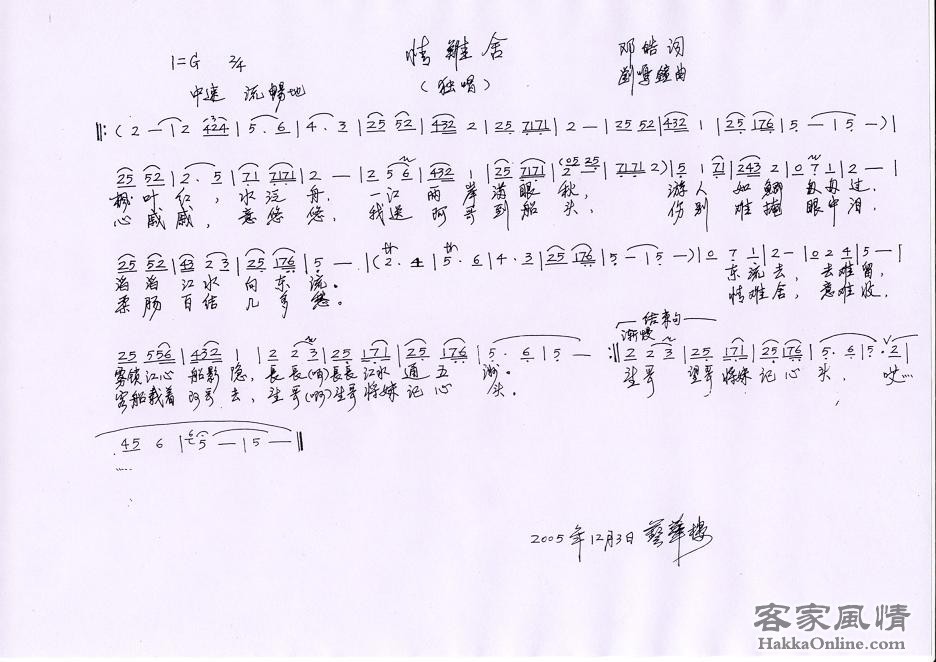 情難舍
1=G 2/4
邓皓词
(独唱)
曲
中速 流畅地
‖: ( 2 — | 2 424 | 5 · 6 | 4 · 3 | 25 52 | 432 2 | 25 7171 | 2 — | 25 52 | 432 1 | 25 176 | 5 — | 5 — ) |
25 52 | 2 · 5 | 71 7171 | 2 — | 2 5 6 | 432 1 | 25 7171 | 2 (05 25 | 7171 2 ) | 5 1 71 | 243 2 | 0 7 1 | 2 — |
枫叶红，水泛舟，一江两岸满眼秋，游人如鲫 过，
心戚戚，意悠悠，我送阿哥到船头，伤别难掩眼中泪，
25 52 | 43 2 3 | 25 176 | 5 — | ( 2 · 4 | 5 · 6 | 4 · 3 | 25 176 | 5 — | 5 — ) | 0 7 1 | 2 — | 0 2 4 | 5 — |
滔滔江水向东流。东流去，去难留，
柔肠百结几多愁。情难舍，意难收，
结束句
渐慢
25 556 | 432 1 | 2 2 3 | 25 171 | 25 176 | 5 · 6 | 5 — :‖ 2 2 3 | 25 171 | 25 176 | 5 · 6 | 5 · 2 |
雾锁江心船影隐，長長(啊)長長江水通五洲。望哥 望哥将妹记心头，哎……
客船载着阿哥去，望哥(啊)望哥将妹记心头。
45 6 | 6 5 — | 5 — ‖
……
2005年12月3日 藝華樓
客家風情
HakkaOnline.com